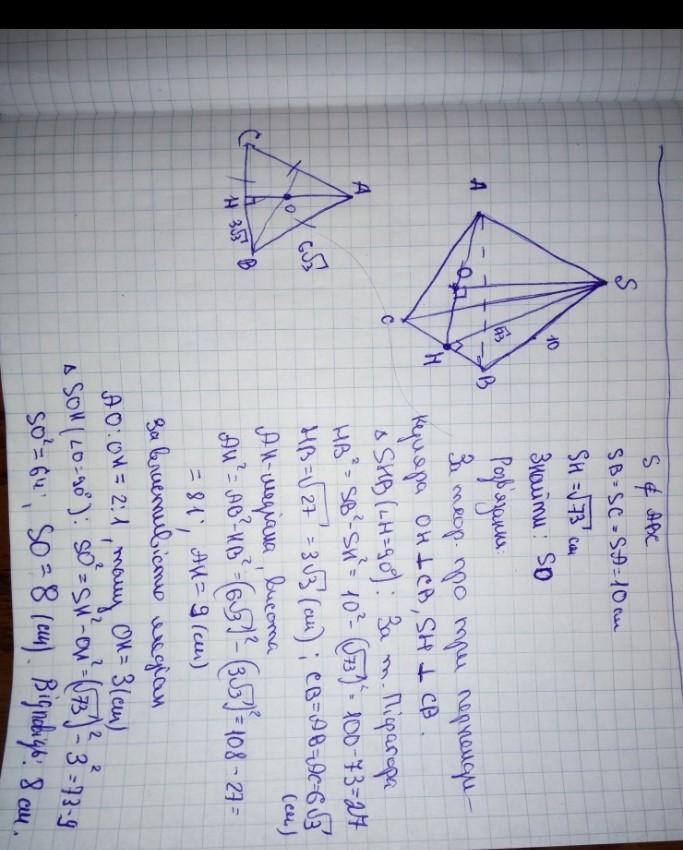 S ∉ ABC
SB = SC = SA = 10 см
SH = √73 см
Знайти: SO
Розв'язання:
За теор. про три перпенди-
куляра OH ⊥ CB, SH ⊥ CB.
△ SHB (∠H = 90°): За т. Піфагора
HB² = SB² - SH² = 10² - (√73)² = 100 - 73 = 27
HB = √27 = 3√3 (см); CB = AB = AC = 6√3
(см)
AH - медіана, висота
AH² = AB² - HB² = (6√3)² - (3√3)² = 108 - 27 =
= 81; AH = 9 (см)
За властивістю медіан
AO : OH = 2:1, тому OH = 3 (см)
△ SOH (∠O = 90°): SO² = SH² - OH² = (√73)² - 3² = 73 - 9
SO² = 64; SO = 8 (см). Відповідь: 8 см.
S
A
O
C
H
B
√73
10
A
O
C
H
3√3
B
6√3